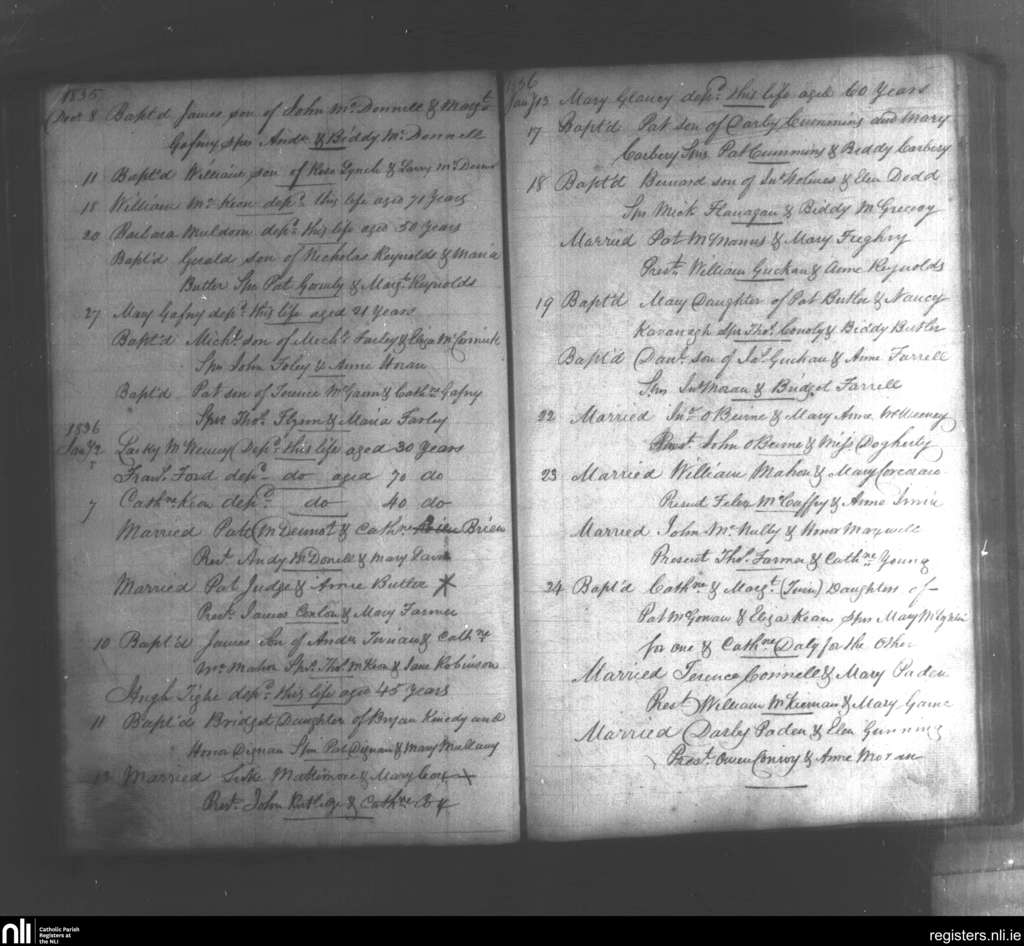 1835
Dec. 8 Bapt'd James son of John McDonnell & Margt
Gafny Sprs Andw & Biddy McDonnell
11 Bapt'd William son of Ross Lynch & Lacey
18 William McKeon depd this life aged 71 Years
20 Barbara Muldoon depd this life aged 50 Years
Bapt'd Gerald son of Nicholas Reynolds & Maria
Butler Spr Pat Gormly & Margt Reynolds
27 Mary Gafny depd this life aged 21 Years
Bapt'd Michl son of Michl Farley & Eliza McCormick
Sprs John Foley & Anne Horan
Bapt'd Pat son of Terence McGann & Cathne Gafny
Sprs Thos Flynn & Maria Farley
1836
Jany 2 Lacky Depd this life aged 30 Years
Frans Ford depd do aged 70 do
7 Cathne Keon depd do 40 do
Married Patk McDermot & Cathne Brien
Prest Andy McDonell & Mary
Married Pat Judge & Anne Butler
Prest James Conlon & Mary Farmer
10 Bapt'd James Son of Andw & Cathne
McMahon Sprs Thos McKeon & Jane Robinson
Hugh Tighe depd this life aged 45 Years
11 Bapt'd Bridget Daughter of Bryan Kinedy and
Honor Dignan Sprs Pat Dignan & Mary Mullany
13 Married Luke Mattimore & Mary
Prest John Rutlege & Cathne
1836
Jany 13 Mary Glancy depd this life aged 60 Years
17 Bapt'd Pat son of Darby Cummins and Mary
Carbery Sprs Pat Cummins & Biddy Carbery
18 Bapt'd Bernard son of Jno Holmes & Elen Dodd
Sprs Mick Flanagan & Biddy McGreevy
Married Pat McManus & Mary Feeghry
Prest William Guckan & Anne Reynolds
19 Bapt'd Mary Daughter of Pat Butler & Nancy
Kavanagh Sprs Thos Conoly & Biddy Butler
Bapt'd Danl son of Jas Guckan & Anne Farrell
Sprs Jno Moran & Bridget Farrell
22 Married Jno O'Beirne & Mary Anne
Prest John O'Beirne & Miss Dogherty
23 Married William Mahon & Mary Corcoran
Present Felix McCaffry & Anne Irwin
Married John McNulty & Honor Maxwell
Present Thos Farmer & Cathne Young
24 Bapt'd Cathne & Margt (Twin) Daughters of
Pat McGowan & Eliza Kean Sprs Mary
for one & Cathne Daly for the Other
Married Terence Connell & Mary Paden
Prest William McKiernan & Mary
Married Darby Paden & Elen Gunning
Prest Owen Conroy & Anne Moran
nli
Catholic Parish
Registers at
the NLI
registers.nli.ie